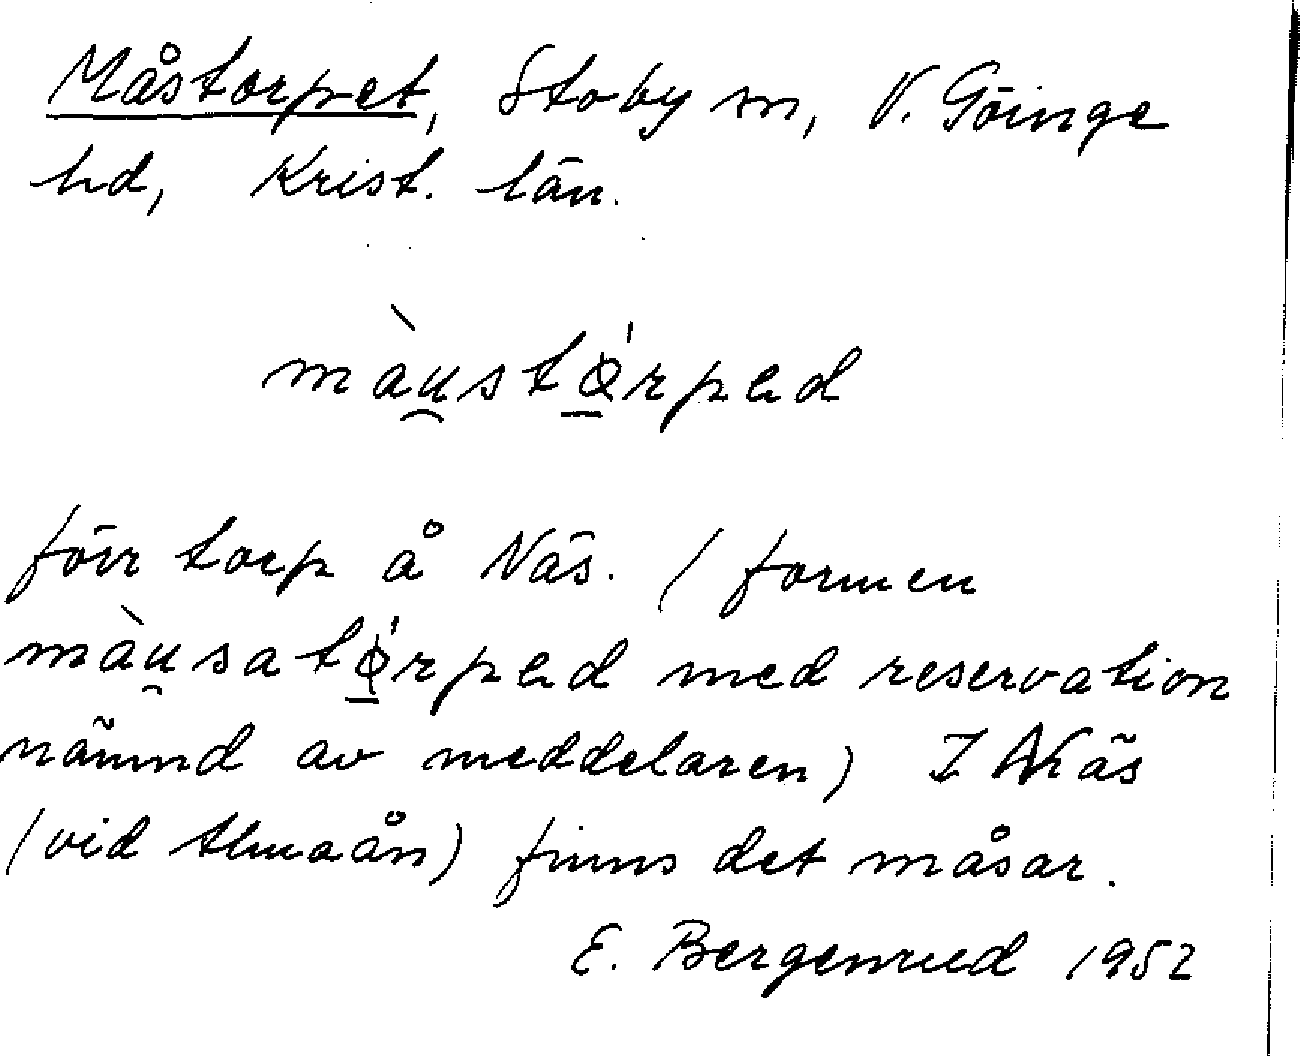 Måstorpet, Stoby sn, V. Göinge
hd, Krist. län.
màu̯stǿ̱rpəd
förr torp å Näs. (formen
màu̯satǿ̱rpəd med reservation
nämnd av meddelaren) I Näs
(vid Almaån) finns det måsar.
E. Bergenrud 1952